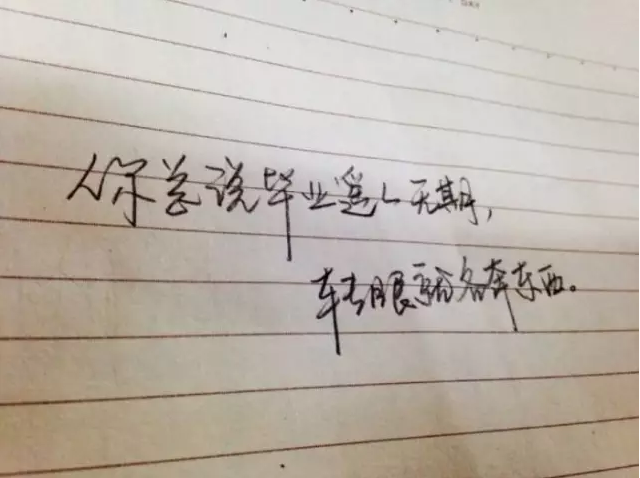 你总说毕业遥遥无期，
转眼就各奔东西。